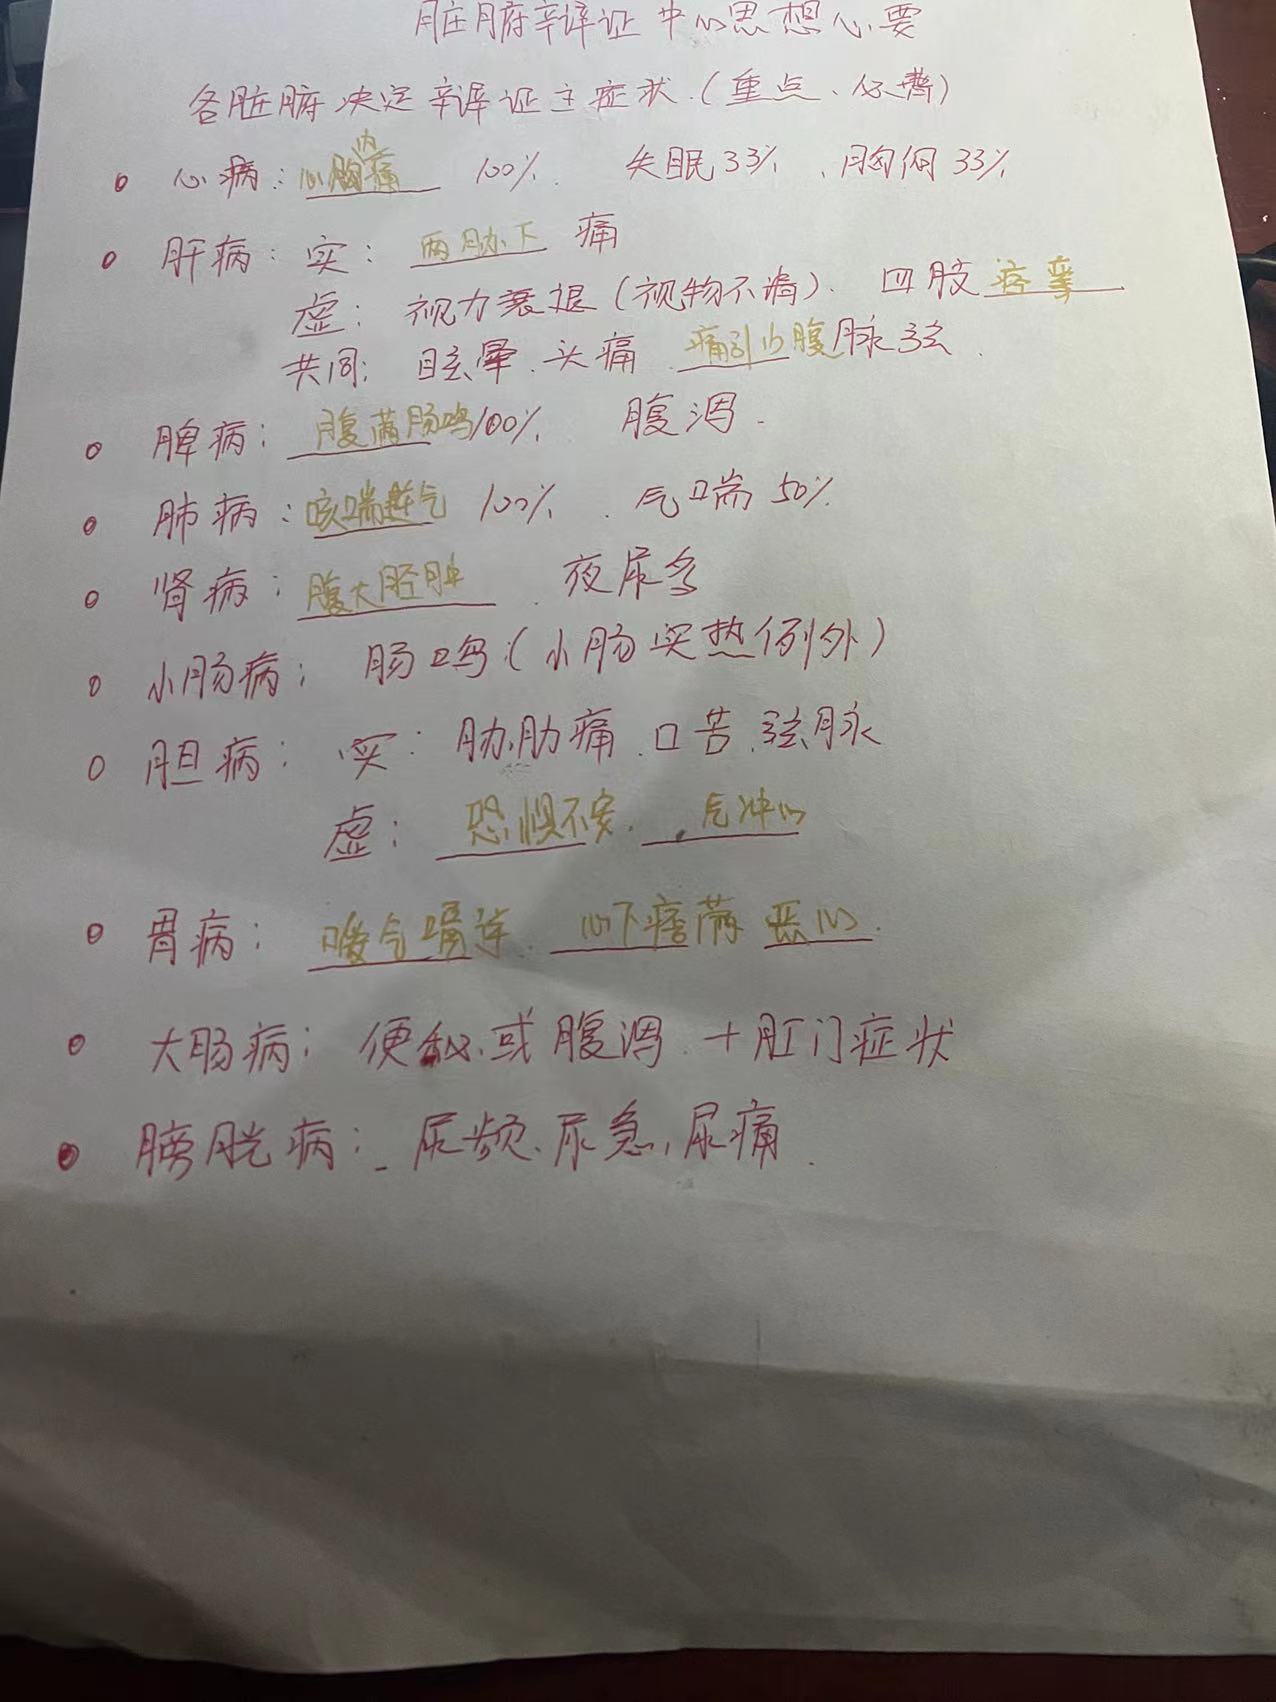 脏腑辨证中心思想心要
各脏腑决定辨证主症状.(重点、必背)
心病:心胸内痛 100%. 失眠33%、胸闷33%
肝病:实:两胁下痛
虚:视力衰退(视物不清)、四肢痉挛
共同:眩晕、头痛、痛引少腹 脉弦.
脾病:腹满肠鸣100%、腹泻.
肺病:咳喘逆气 100%、气喘50%
肾病:腹大胫肿、夜尿多
小肠病:肠鸣(小肠实热例外)
胆病:实:胁肋痛、口苦、弦脉
虚:恐惧不安、气冲心
胃病:嗳气嗝逆、心下痞满 恶心.
大肠病:便秘、或腹泻、+肛门症状
膀胱病:尿频、尿急、尿痛.